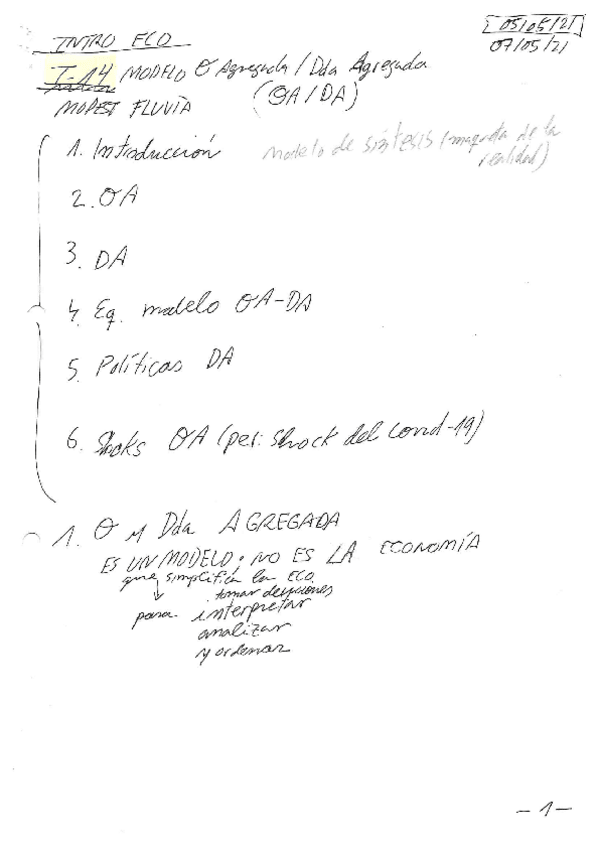 INTRO ECO
05/05/21
07/05/21
T-14 MODELO O Agregada / Dda Agregada
(OA/DA)
MODEST FLUVIÀ
1. Introducción Modelo de síntesis (maqueta de la
realidad)
2. OA
3. DA
4. Eq. modelo OA-DA
5. Políticas DA
6. Shoks OA (per: shock del covid-19)
1. O y Dda AGREGADA
ES UN MODELO; NO ES LA ECONOMÍA
que simplifica la ECO.
tomar decisiones
para interpretar
analizar
y ordenar
-1-